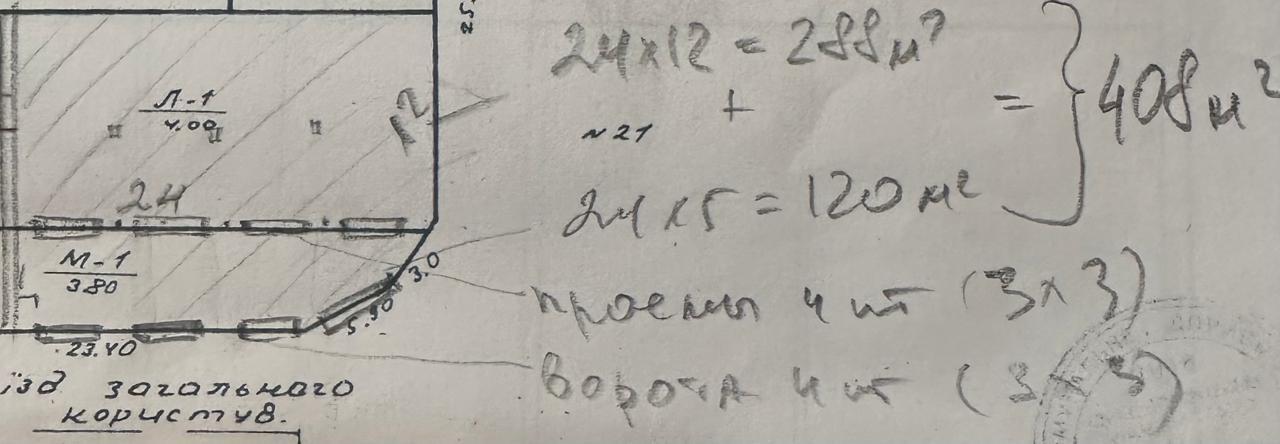 25.
24×12 = 288 м²
Л-1
4.00
12
+
= 408 м²
№21
24
24×5 = 120 м²
М-1
3.80
3.0
проемы 4 шт (3×3)
5.90
23.40
ворота 4 шт (3×3)
їзд загального
користув.